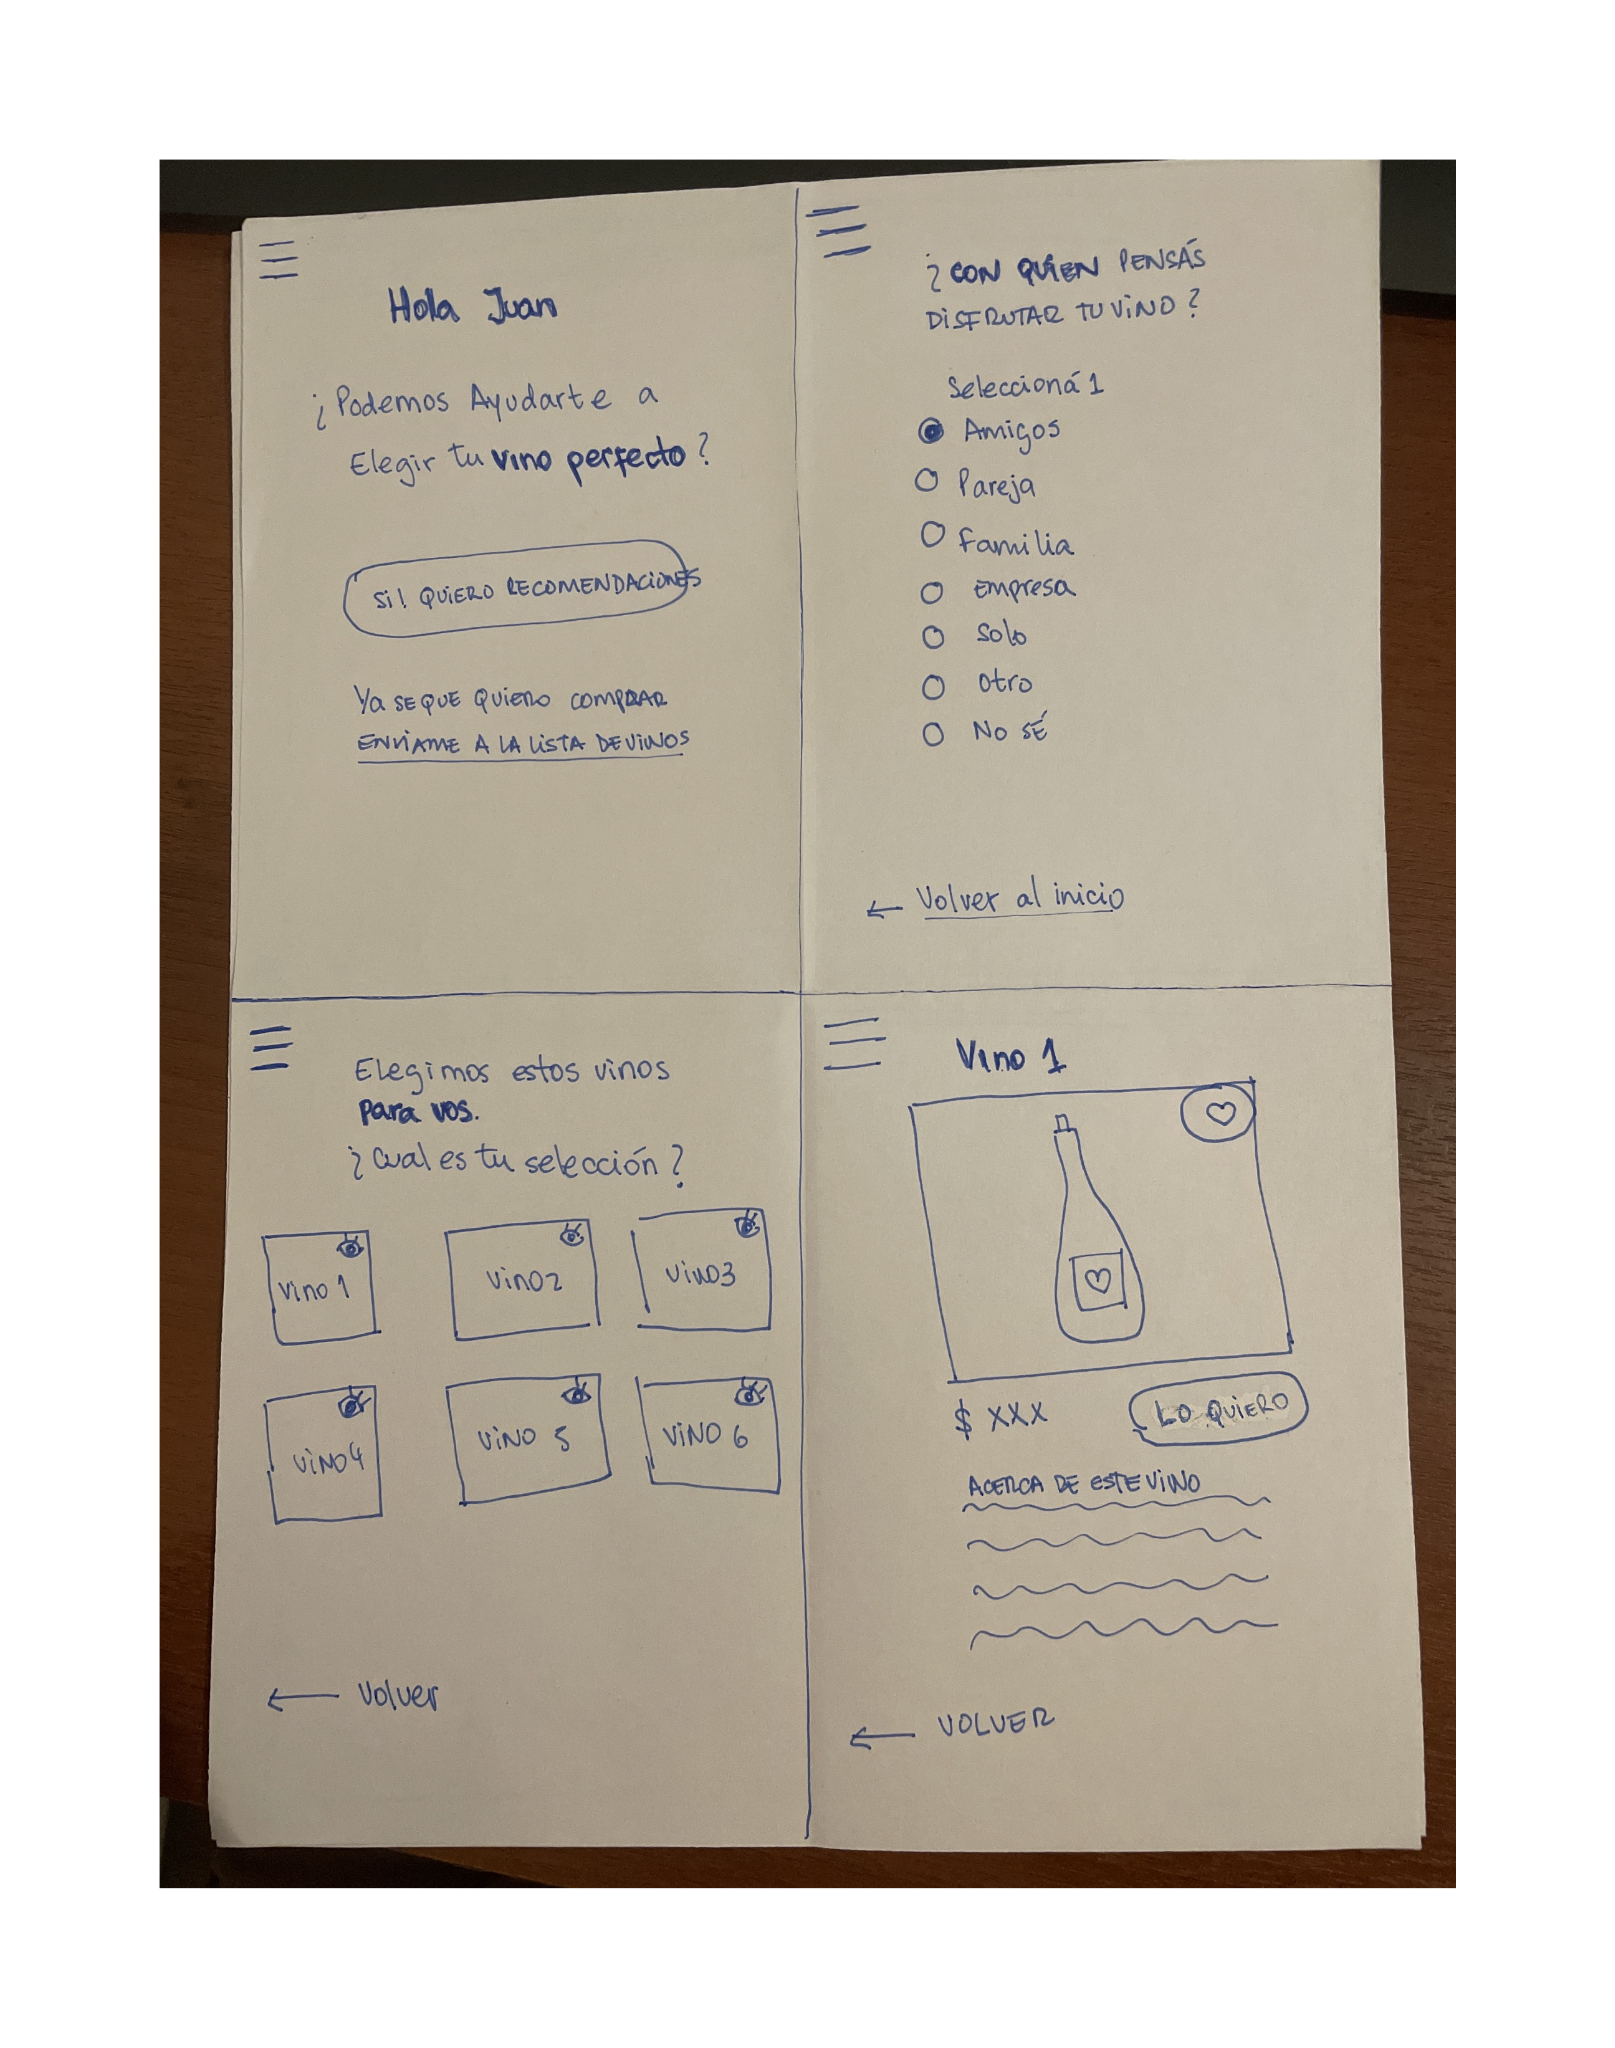 Hola Juan
¿Podemos Ayudarte a
Elegir tu vino perfecto?
Si! QUIERO RECOMENDACIONES
Ya SE QUE QUIERO COMPRAR
ENVIAME A LA LISTA DE VINOS
¿CON QUIEN PENSÁS
DISFRUTAR TU VINO?
Seleccioná 1
Amigos
Pareja
Familia
Empresa
Solo
Otro
No SÉ
← Volver al inicio
Elegimos estos vinos
para vos.
¿Cual es tu selección?
Vino 1
Vino 2
Vino 3
VINO 4
VINO 5
VINO 6
← Volver
Vino 1
$ XXX
LO QUIERO
ACERCA DE ESTE VINO
← VOLVER